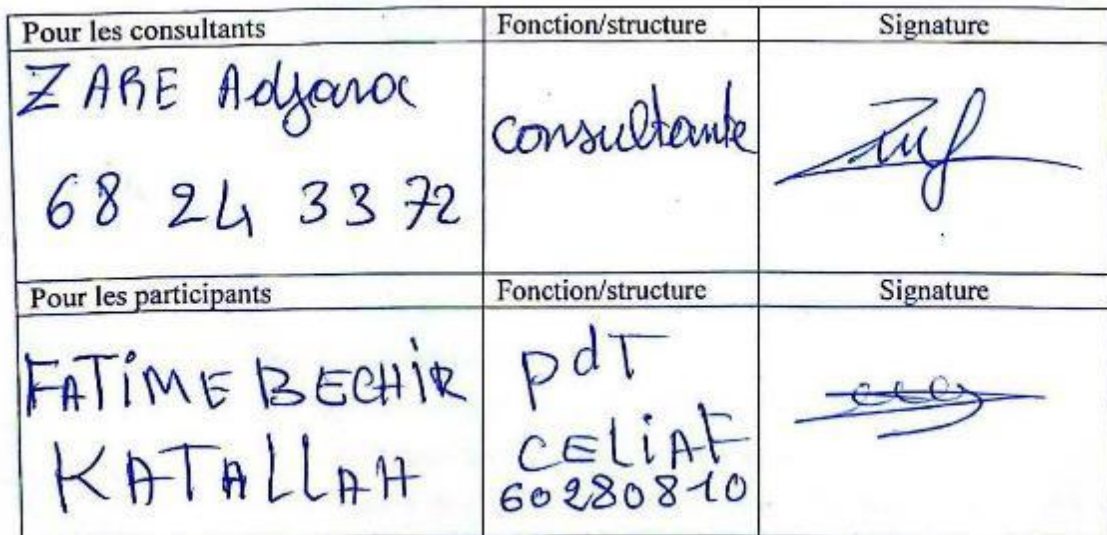 Pour les consultants Fonction/structure Signature
ZARE Adjara
consultante
68 24 33 72
Pour les participants Fonction/structure Signature
FATIME BECHIR
KATALLAH
pdT
CELIAF
60280810